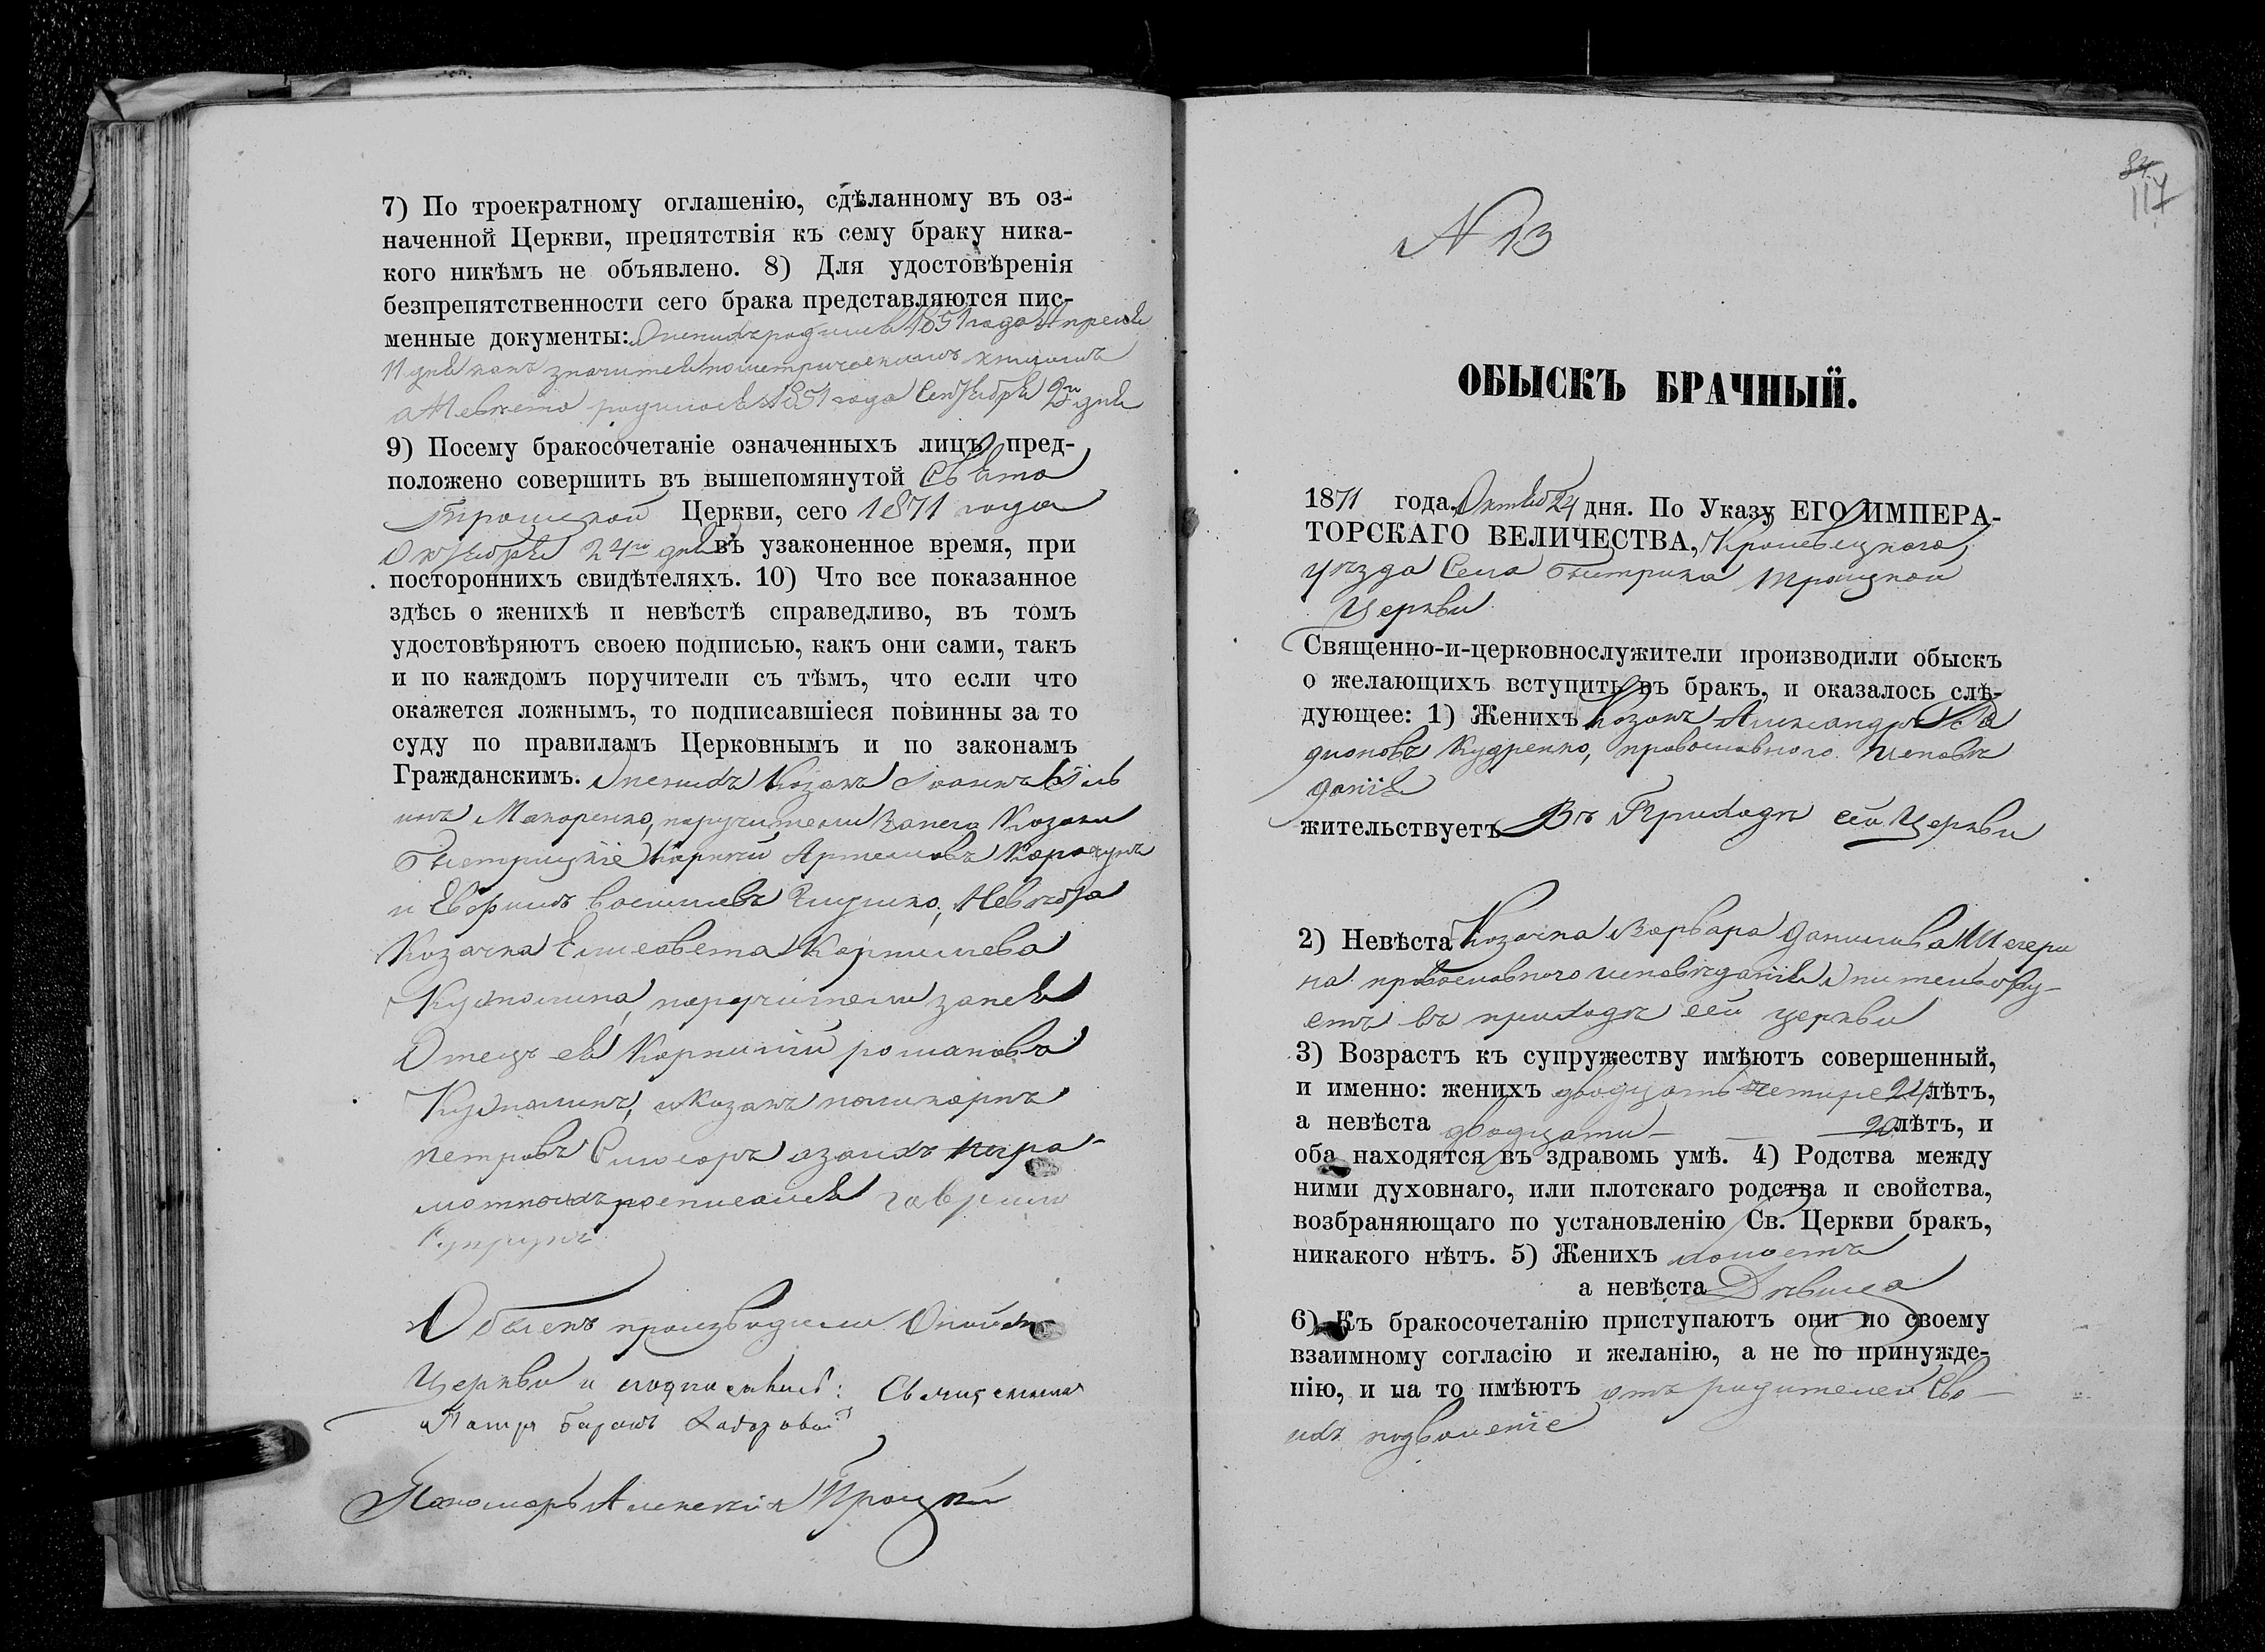 7) По троекратному оглашенію, сдѣланному въ оз-
наченной Церкви, препятствія къ сему браку ника-
кого никѣмъ не объявлено. 8) Для удостовѣренія
безпрепятственности сего брака представляются пис-
менные документы: Женихъ родился 1851 года Апреля
11 дня какъ значится по метрическимъ книгамъ
а Невѣста родилась 1851 года Сентября 2го дня
9) Посему бракосочетаніе означенныхъ лицъ пред-
положено совершить въ вышепомянутой Свято
Троицкой Церкви, сего 1871 года
Октября 24го дня въ узаконенное время, при
постороннихъ свидѣтеляхъ. 10) Что все показанное
здѣсь о женихѣ и невѣстѣ справедливо, въ томъ
удостовѣряютъ своею подписью, какъ они сами, такъ
и по каждомъ поручители съ тѣмъ, что если что
окажется ложнымъ, то подписавшіеся повинны за то
суду по правиламъ Церковнымъ и по законамъ
Гражданскимъ. Женихъ Козакъ Іоаннъ
Макаренко, поручители Занего Козаки
Быстрицкіе Карпъ Артемовъ
и Евфимъ Васильевъ Невѣста
Козачка Елисавета Корнилиева
поручители занея
Отецъ ея Корнилій Романовъ
и Козакъ поликарпъ
петровъ Слюсаръ азаихъ негра-
мотныхъ росписался гавриилъ
Супрунъ
Обыскъ производили Оной
Церкви и подписались: Священникъ

Пономарь Алексѣй Троицкій
84
117
N 13
ОБЫСКЪ БРАЧНЫЙ.
1871 года, Октяб 24 дня. По Указу ЕГО ИМПЕРА-
ТОРСКАГО ВЕЛИЧЕСТВА, Кролевецкого
уѣзда Села Быстрика Троицкой
Церкви
Священно-и-церковнослужители производили обыскъ
о желающихъ вступить въ бракъ, и оказалось слѣ-
дующее: 1) Женихъ Козакъ Александръ Ра
дионовъ Кудренко, православного исповѣ
данія
жительствуетъ Въ Приходѣ сей Церкви
2) Невѣста Козачка Варвара Данилова Шегери
на православного исповѣданія жительству-
етъ въ приходѣ сей церкви
3) Возрастъ къ супружеству имѣютъ совершенный,
и именно: женихъ двадцать четыре 24 лѣтъ,
а невѣста двадцати - 20 лѣтъ, и
оба находятся въ здравомъ умѣ. 4) Родства между
ними духовнаго, или плотскаго родства и свойства,
возбраняющаго по установленію Св. Церкви бракъ,
никакого нѣтъ. 5) Женихъ холостъ
а невѣста Дѣвица
6) Къ бракосочетанію приступаютъ они по своему
взаимному согласію и желанію, а не по принужде-
нію, и на то имѣютъ отъ родителей Сво-
ихъ позволеніе